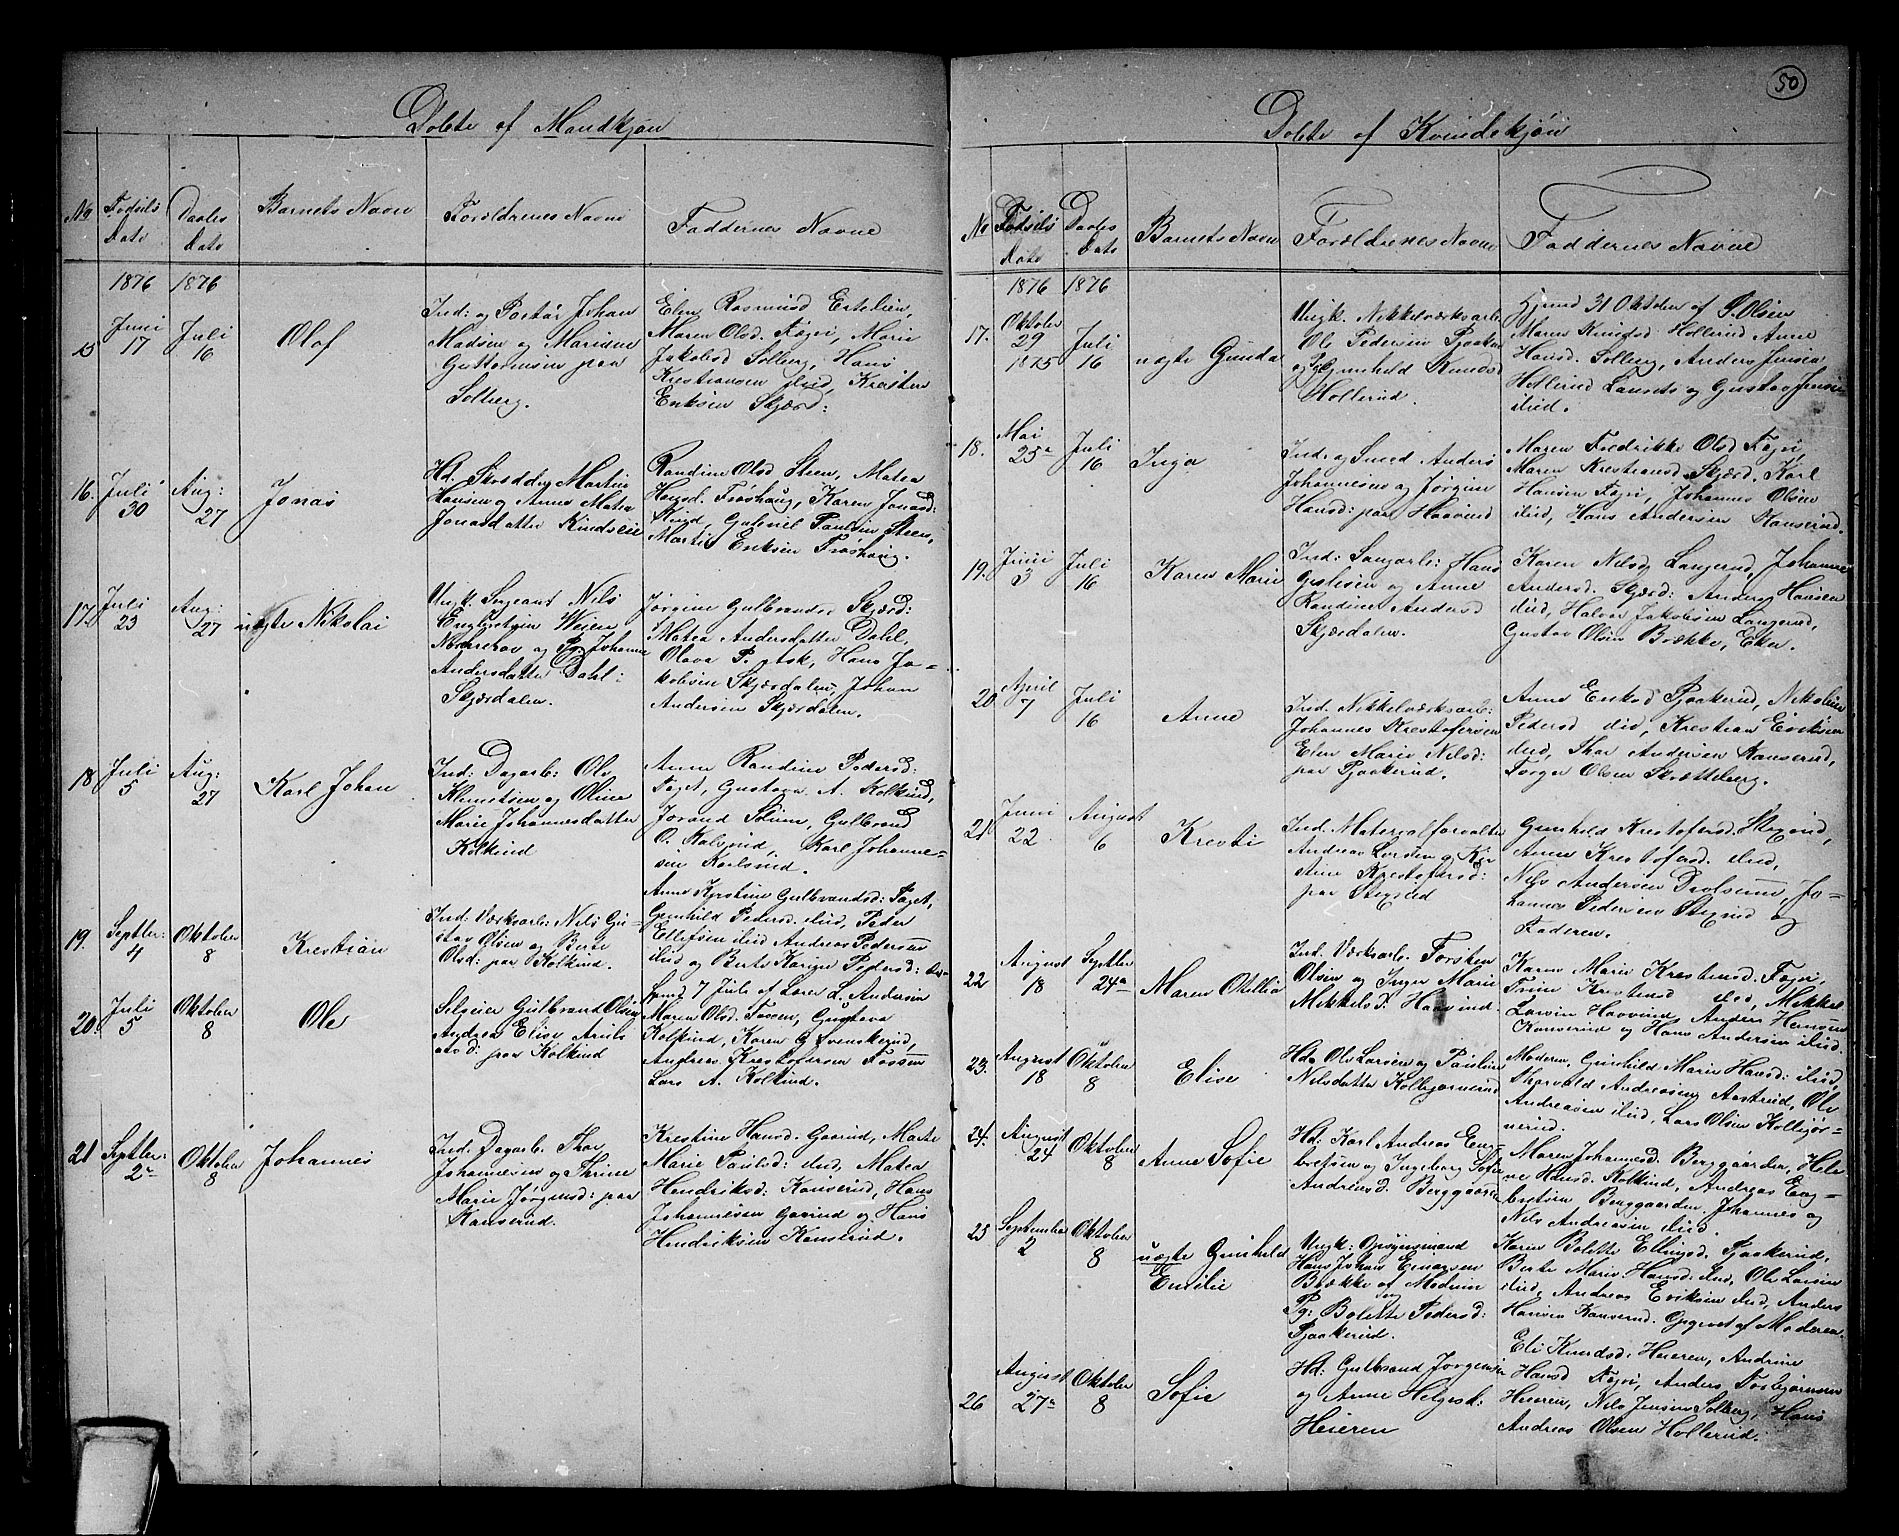 50
Døbte af Mandkjøn
No Fødsels Dato Daabs Dato Barnets Navn Forældrenes Navne Faddernes Navne
1876 1876
15 Juni 17 Juli 16 Olof
Ind: og Johan
Madsen og Mariane
Guttormsen paa
Solberg.
Elen Rasmusd
Maren Olsd. Røgri, Marie
Jakobsd Solberg, Hans
Krestiansen ibid, Kresten
Eriksen Skjørd:
16. Juli 30 Aug: 27 Jonas
Hd. Martin
Hansen og Anne Matea
Jonasdatter
Randine Olsd Steen, Matea
Hansd. Frøshaug, Karen Jonasd:
Gabriel Paulsen Steen,
Martin Eriksen Frøshaug.
17. Juli 23 Aug: 27 uægte Nikolai
Ungk. Sergeant Nils
Engbretsen
og Pg. Johanne
Andersdatter Dahl:
Skjærdalen.
Jørgine Gulbrandsd Skjørd:
Matea Andersdatter Dahl,
Olava P. Ask, Hans Ja-
kobsen Skjærdalen, Johan
Andersen Skjærdalen.
18 Juli 5 Aug: 27 Karl Johan
Ind: Dagarb: Ole
Klemetsen og Oline
Marie Johannesdatter
Kolkind
Anne Randine Pedersd:
Faget, Gustava A. Kolkind,
Jorand Gulbrand
O. Karl Johanne-
sen
19. Septber: 4 Oktober 8 Krestian
Ind: Værksarb: Nils Gu-
stav Olsen og Berte
Olsd: paa Kolkind.
Anne Kjrstine Gulbrandsd: Faget,
Gunhild Pedersd. ibid, Peder
Ellefsen ibid Andreas Pedersen
ibid og Berte Karine Pedersd:
20. Juli 5 Oktober 8 Ole
Selveier Gulbrand Olsen
Andrea Elise
paa Kolkind
7 Juli af Lærer L. Andersen
Maren Olsd: Gustava
Kolkind, Karen G Svenskerud,
Andreas Krestofersen Fossum
Lars A. Kolkind.
21 Septber: 2 Oktober 8 Johannes
Ind: Dagarb: Thor
Johannesen og Thrine
Marie Jørgensd: paa
Kanserud.
Krestine Hansd. Gaarud, Marte
Marie Paulsd: ibid, Matea
Hendriksd: Kanserud, Hans
Johannesen Gaarud og Hans
Hendriksen Kanserud.
Døbte af Kvindekjøn
No Fødsels Dato Daabs Dato Barnets Navn Forældrenes Navne Faddernes Navne
1876 1876
17. Oktober 29 1875 Juli 16 uægte Gunda
Ungk. Nikkelværksarb.
Ole Pedersen Pjaakerud
og Pg Gunhild Knudsd
Hollerud.
Hjemd 31 Oktober af P. Olsen
Maren Hollerud Anne
Hansd. Solberg, Anders Jensen
Hollerud og Gustav Jensen
ibid.
18. Mai 25 Juli 16 Inga
Ind. og Smed Anders
Johannesen og Jørgine
Hansd: paa Haavind
Maren Fredrikke Olsd Røgri,
Maren Krestiansd. Skjørd, Karl
Hansen Røgri, Johannes Olsen
ibid, Hans Andersen Kanserud.
19. Juni 3 Juli 16 Karen Marie
Ind: Saugarb: Hans
Gulsen og Anne
Randine Andersd
Skjærdalen.
Karen Nilsd Langerud, Johanne
Andersd. Skjørd: Anders Hansen
ibid, Halvor Jakobsen Langerud,
Gustav Olsen Brække, Eker.
20 April 7 Juli 16 Anne
Ind. Nikkelværksarb:
Johannes Krestofersen
Elen Marie Nilsd:
paa Pjaakerud.
Anne Eriksd Pjaakerud, Nikoline
Pedersd ibid, Krestian Eriksen
ibid, Thor Andersen Kanserud,
Torger Olsen Skrætteberg.
21 Juni 22 August 6 Kresti
Ind. Materialforvalter
Andreas Larsen og
Anne Krestofersd:
paa
Gunhild Krestofersd.
Anne Krestofersd. ibid,
Nils Andersen Jo-
hannes Pedersen og
Faderen.
22 August 18 Septber 24 Maren Otellia
Ind. Værksarb. Torsten
Olsen og Inger Marie
Mikkelsd. Haavind
Karen Marie Krestensd. Røgri,
Trine Krestensd ibid, Mikkel
Larsen Haavind, Anders Hansen
Kanserud og Hans Andersen ibid.
23. August 18 Oktober 8 Elise
Hd. Ole Larsen og Pauline
Nilsdatter Kolbjørnerud
Moderen, Gunhild Marie Hansd: ibid,
Thorvald Andreasen Aastrud, Ole
Andreasen ibid, Lars Olsen Kolbjør-
nerud.
24. August 24 Oktober 8 Anne Sofie
Hd: Karl Andreas Eng-
bretsen og Ingeborg Sofie
Andreasd. Berggaarden
Maren Johannesd. Berggaarden, Hele-
ne Hansd. Kolkind, Andreas Eng-
bretsen Berggaarden, Johannes og
Nils Andreasen ibid.
25 September 2 Oktober 8 uægte Gunhild
Emilie
Ungk: Opsynsmand
Hans Johan Einarsen
Brække af Modum
og
Pg: Bolette Pedersd:
Pjaakerud.
Karen Bolette Ellingsd. Pjaakerud,
Berte Marie Hansd: ibid, Ole Larsen
ibid, Andreas Eriksen ibid, Anders
Hansen Kanserud. Opgivet af Moderen.
26 August 27 Oktober 8 Sofie
Hd: Gulbrand Jørgensen
og Anne Helgesd:
Heieren
Eli Knudsd: Heieren, Andrine
Hansd Røgri, Anders Torbjørnsen
Heieren, Nils Jensen Solberg, Hans
Andreas Olsen Hollerud.